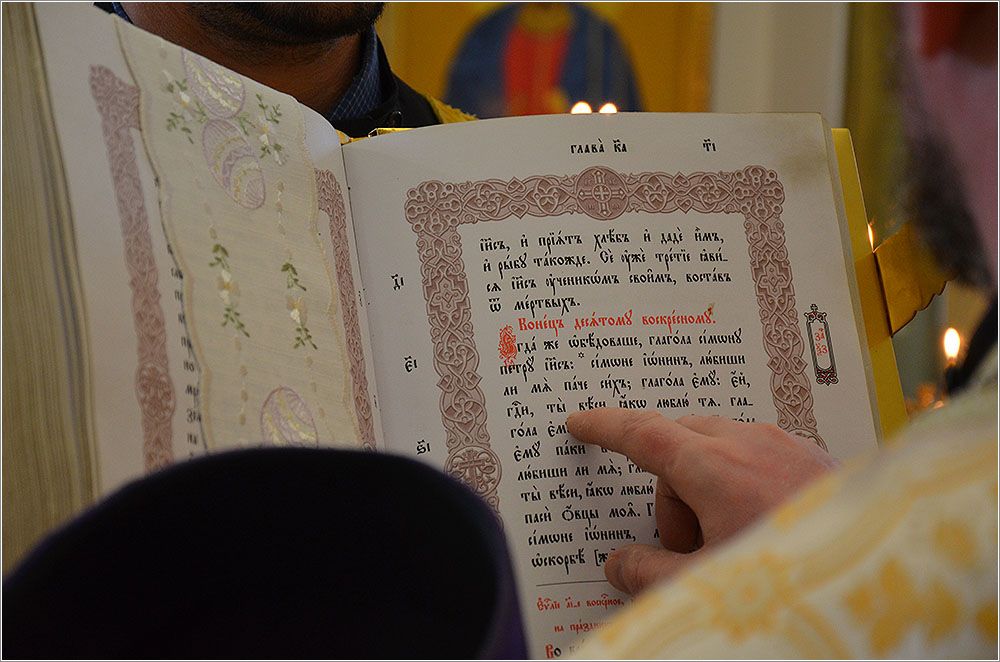 глава̀ к҃а т҃і
і҆и҃съ, и҆ прїѧ́тъ хлѣ́бъ и҆ дадѐ и҆̀мъ,
и҆ ры́бꙋ та́кожде. Се́ ᲂу҆жѐ тре́тїе ꙗ҆ви́-
сѧ і҆и҃съ ᲂу҆ченикѡ́мъ свои̑мъ, воста́въ
ѿ ме́ртвыхъ.
Коне́цъ десѧ́томꙋ воскре́сномꙋ.
Є҆гда́ же ѡ҆бѣ́доваше, глаго́ла сі́мѡнꙋ
петрꙋ̀ і҆и҃съ: сі́мѡне і҆ѡ́нинъ, лю́биши
ли мѧ̀ па́че си́хъ; глаго́ла є҆мꙋ̀: є҆́й,
гд҇и, ты̀ вѣ́си, ꙗ҆́кѡ люблю́ тѧ. гла-
го́ла є҆мꙋ̀
є҆мꙋ̀ па́ки
лю́биши ли мѧ̀;
ты̀ вѣ́си, ꙗ҆́кѡ люблю́
пасѝ ѻ҆́вцы моѧ̑. Г
сі́мѡне і҆ѡ́нинъ, л
ѡ҆скорбѣ́ [же
Єѵⷢ҇лїе а҃і-е воскре́сно,
на пра́здни
Во
д҃і
є҃і
ѕ҃і
за҄
ѯ҃з